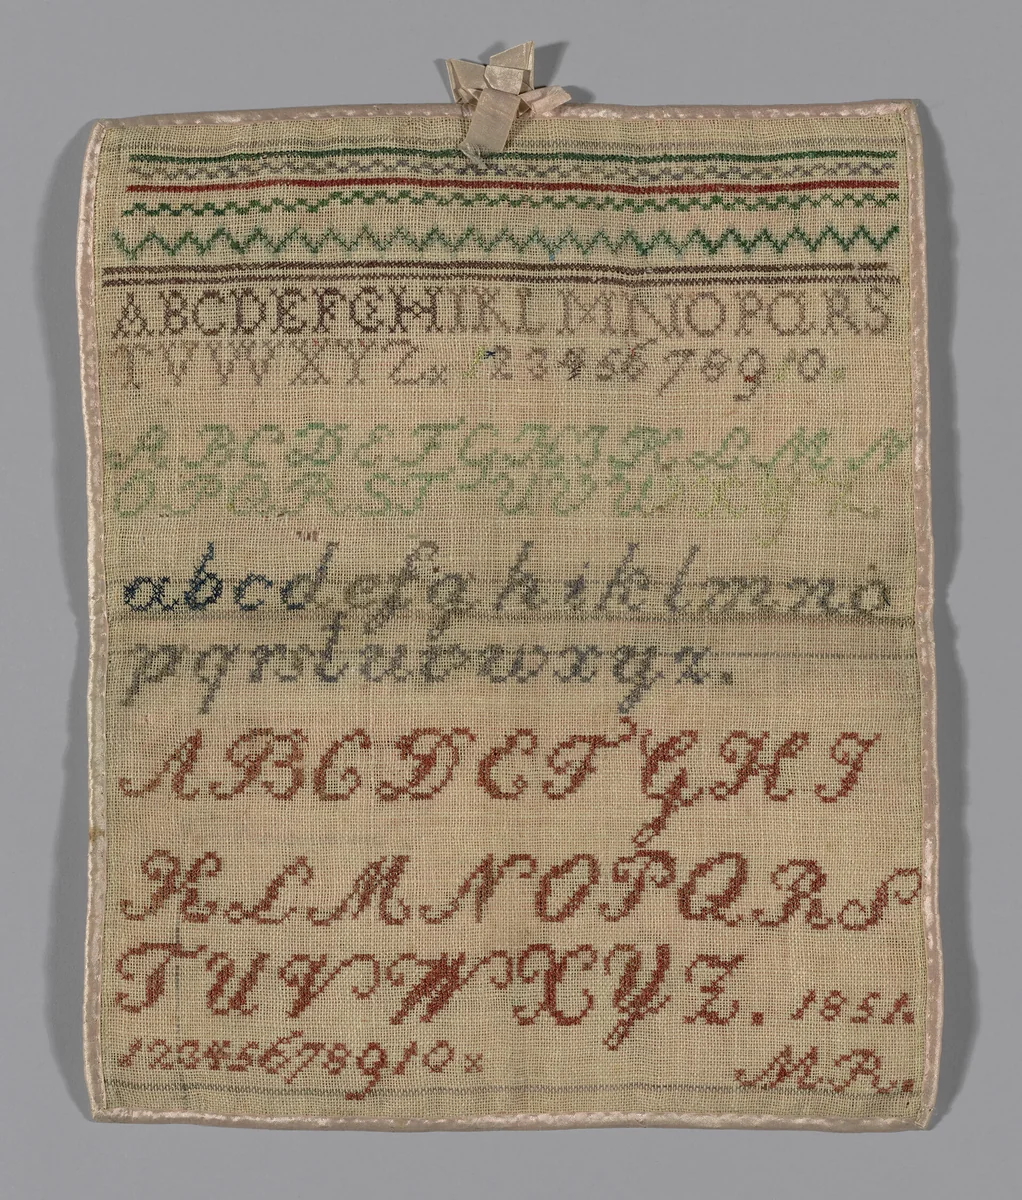 ABCDEFGHIKLMNOPQRS
TVWXYZx 1234567890.
ABCDEFGHIKLMN
OPQRSTUVWXYZ
abcdefghiklmno
pqrstuvwxyz.
ABCDEFGHI
KLMNOPQRS
TUVWXYZ. 1851.
1234567890x
MR.